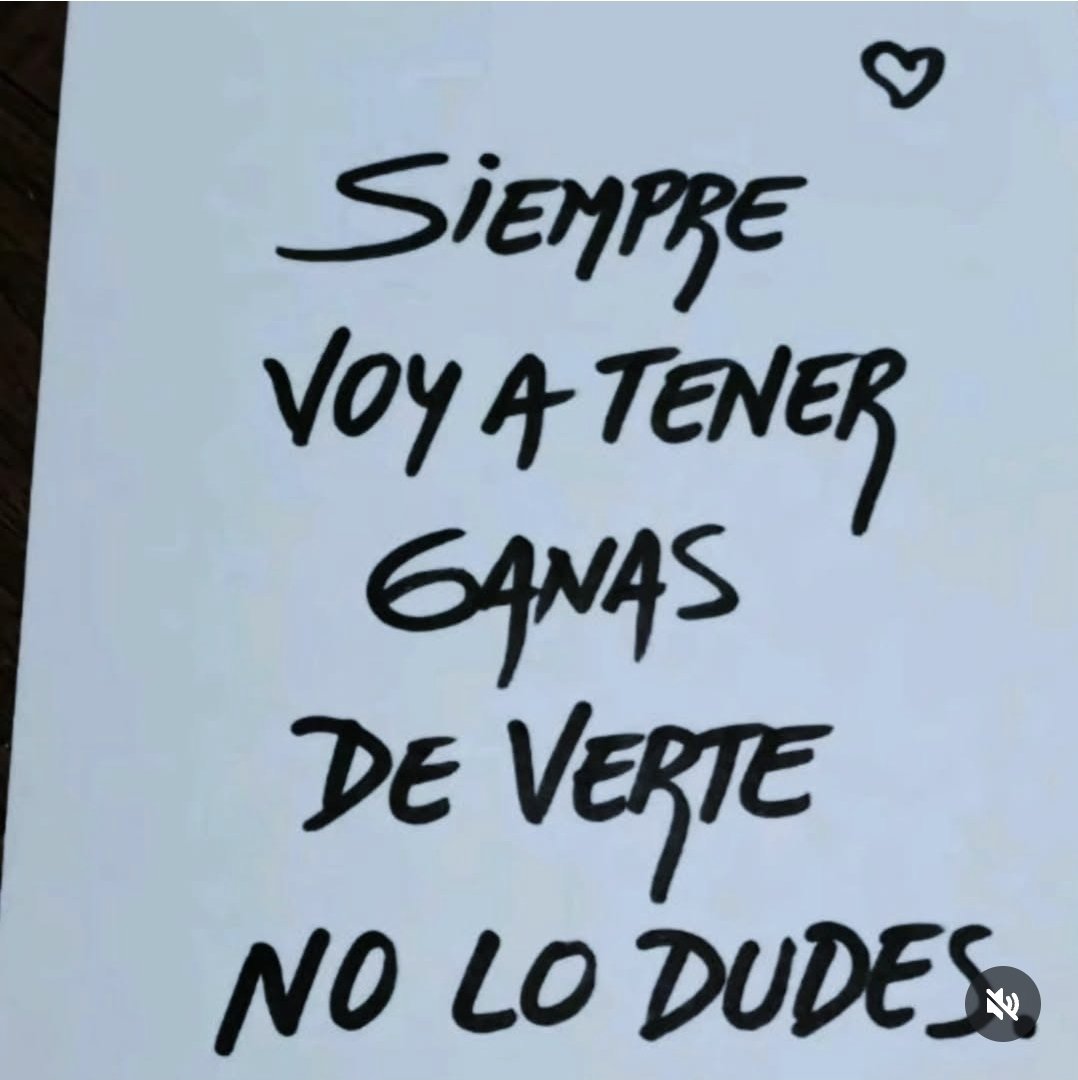 SiEMPRE
VOY A TENER
GANAS
DE VERTE
NO LO DUDES.